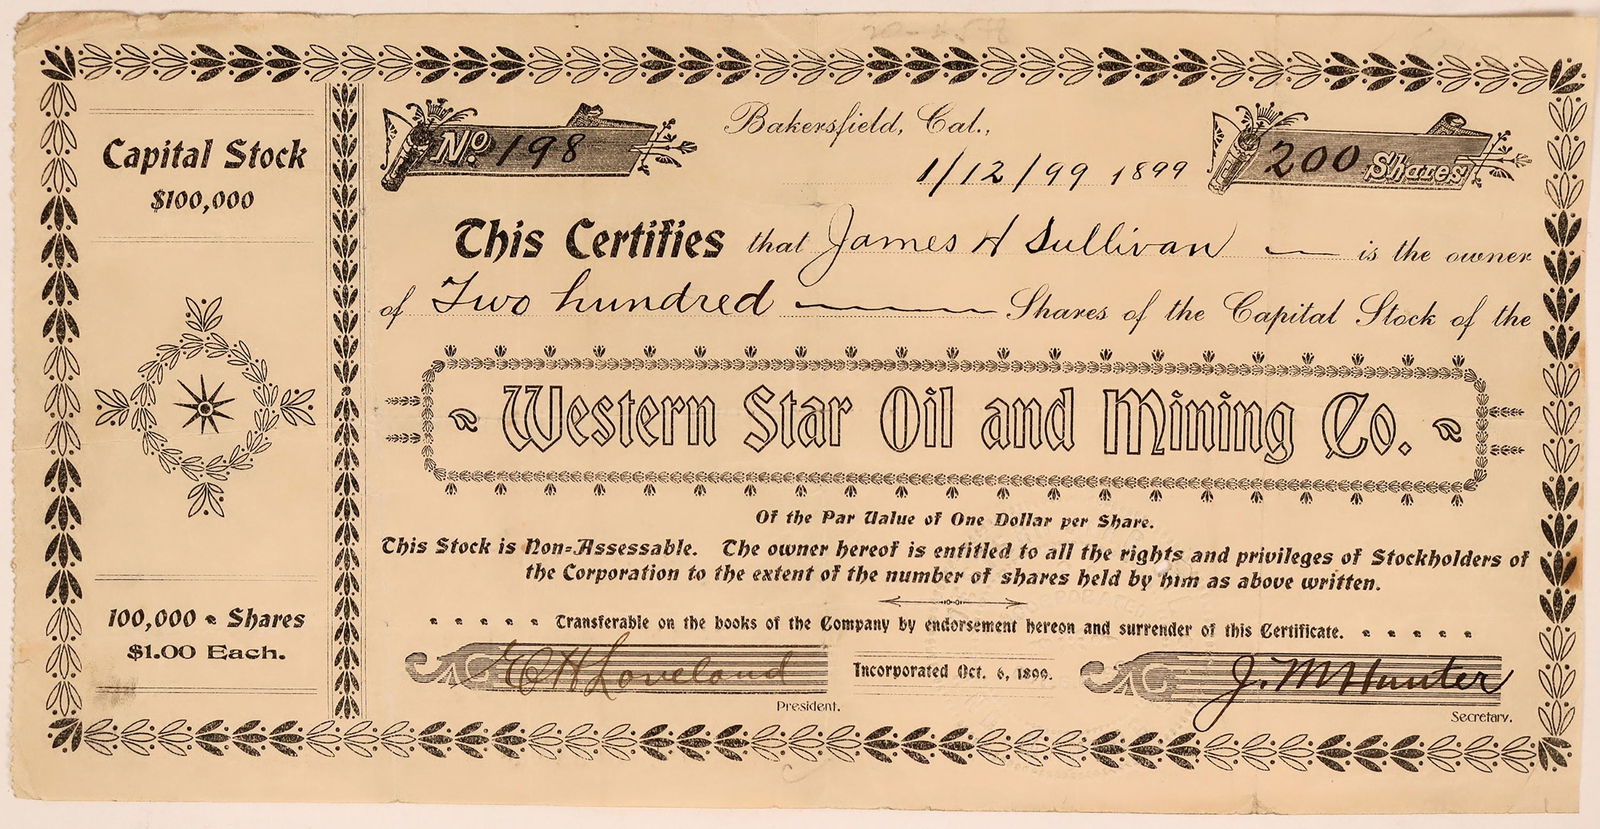 Capital Stock
$100,000
100,000 Shares
$1.00 Each.
No. 198
Bakersfield, Cal.,
1/12/99 1899
200 Shares
This Certifies that James H Sullivan is the owner
of Two hundred Shares of the Capital Stock of the
Western Star Oil and Mining Co.
Of the Par Value of One Dollar per Share.
This Stock is Non-Assessable. The owner hereof is entitled to all the rights and privileges of Stockholders of
the Corporation to the extent of the number of shares held by him as above written.
Transferable on the books of the Company by endorsement hereon and surrender of this Certificate.
E H Loveland
President.
Incorporated Oct. 6, 1899.
J. M Hunter
Secretary.